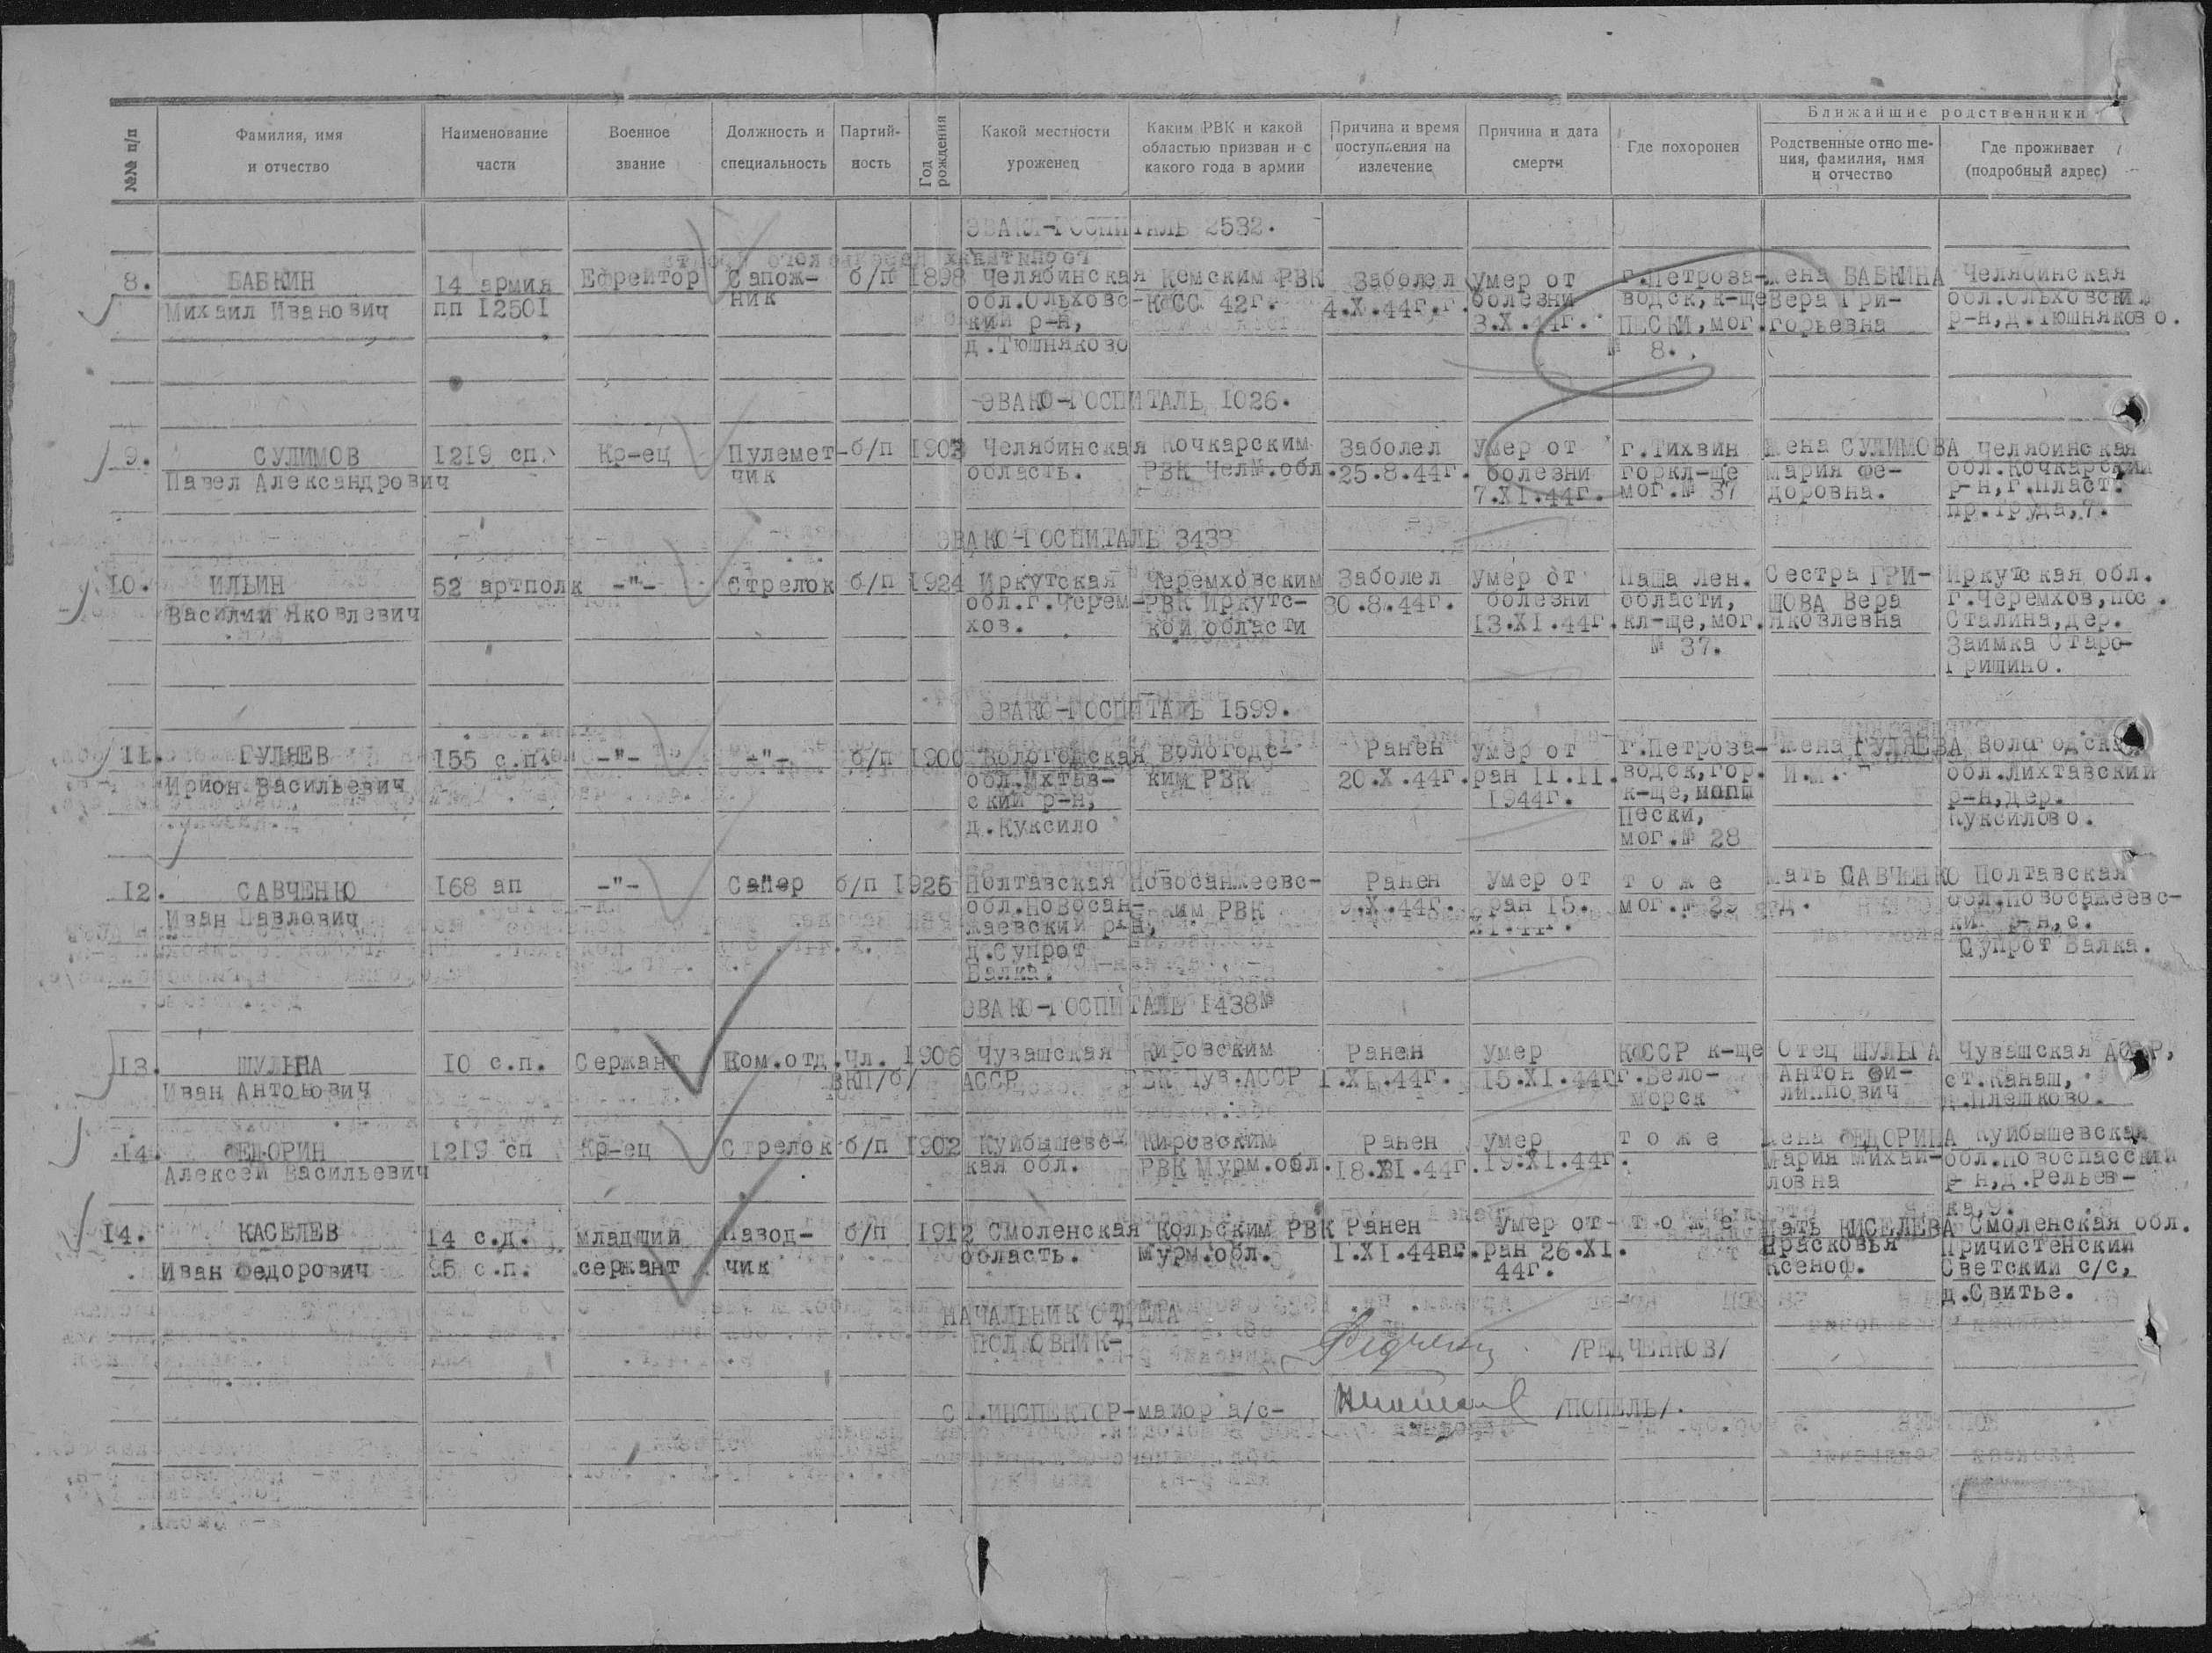 №№ п/п
Фамилия, имя и отчество
Наименование части
Военное звание
Должность и специальность
Партий- ность
Год рождения
Какой местности уроженец
Каким РВК и какой областью призван и с какого года в армии
Причина и время поступления на излечение
Причина и дата смерти
Где похоронен
Ближайшие родственники
Родственные отно ше- ния, фамилия, имя и отчество
Где проживает (подробный адрес)
ЭВАКО-ГОСПИТАЛЬ 2532.
8. БАБКИН 14 армия Ефрейтор Сапож- б/п 1898 Челябинская Кемским РВК Заболел Умер от г.Петроза- Жена БАБКИНА Челябинская
Михаил Иванович пп 12501 ник обл.Ольховс- КССС 42г. 4.X.44г.г. болезни водск,к-ще Вера Гри- обл.Ольховский
кий р-н, 3.X.44г. ПЕСКИ,мог. горьевна р-н,д.Тюшняково.
д.Тюшняково № 8.
ЭВАКО-ГОСПИТАЛЬ 1026.
9. СУЛИМОВ 1219 сп. Кр-ец Пулемет- б/п 1903 Челябинская Кочкарским Заболел Умер от г.Тихвин Жена СУЛИМОВА Челябинская
Павел Александрович чик область. РВК Чел№.обл. 25.8.44г. болезни горкл-ще Мария Фе- обл.Кочкарский
7.XI.44г. мог.№ 37 доровна. р-н,г.Пласт.
пр.Труда,7.
ЭВАКО-ГОСПИТАЛЬ 3433
10. ИЛЬИН 52 артполк -"- Стрелок б/п 1924 Иркутская Черемховским Заболел Умер от Паша Лен. Сестра ГРИ- Иркутская обл.
Василий Яковлевич обл.г.Черем- РВК Иркутс- 30.8.44г. болезни области, ШОВА Вера г.Черемхов,пос.
хов. кой области 13.XI.44г. кл-ще,мог. Яковлевна Сталина,дер.
№ 37. Заимка Старо-
Гришино.
ЭВАКО-ГОСПИТАЛЬ 1599.
11. ГУЛЯЕВ 155 с.п. -"- -"- б/п 1900 Вологодская Вологодс- Ранен Умер от г.Петроза- Жена ГУЛЯЕВА Вологодская
Ирион Васильевич обл.Ихтав- ким РВК 20.X.44г. ран 11.11. водск,гор. И.М. обл.Лихтавский
ский р-н, 1944г. к-ще, р-н,дер.
д.Куксило Пески, Куксилово.
мог.№ 28
12. САВЧЕНКО 168 ап -"- Сапер б/п 1926 Полтавская Новосанжеевс- Ранен Умер от т о ж е Мать САВЧЕНКО Полтавская
Иван Павлович обл.Новосан- ким РВК 9.X.44г. ран 15. мог.№ 29 Д. обл.Новосажеевс-
жаевский р-н, XI.44г. кий р-н,с.
д.Супрот Супрот Балка.
Балка.
ЭВАКО-ГОСПИТАЛЬ 1438№
13. ШУЛЬГА 10 с.п. Сержант Ком.отд. Чл. 1906 Чувашская Кировским Ранен Умер КФССР к-ще Отец ШУЛЬГА Чувашская АССР,
Иван Антонович ВКП/б/ АССР РВК Чув.АССР 1.XI.44г. 15.XI.44г г.Бело- Антон Фи- ст.Канаш,
морск липпович д.Плешково.
14. ФЕДОРИН 1219 сп Кр-ец Стрелок б/п 1902 Куйбышевс- Кировским Ранен Умер т о ж е Жена ФЕДОРИНА Куйбышевская
Алексей Васильевич кая обл. РВК Мурм.обл. 18.XI.44г. 19.XI.44г. Мария Михай- обл.Новоспасский
ловна р-н,д.Рельев-
ка,9.
14. КАСЕЛЕВ 14 с.д. младший Навод- б/п 1912 Смоленская Кольским РВК Ранен Умер от т о ж е Мать КИСЕЛЕВА Смоленская обл.
Иван Федорович 95 с.п. сержант чик область. Мурм.обл. 1.XI.44г. ран 26.XI. Прасковья Причистенский
44г. Ксеноф. Светский с/с,
д.Свитье.
НАЧАЛЬНИК ОТДЕЛА
ПОЛКОВНИК- /РЕДЧЕНКОВ/
СТ.ИНСПЕКТОР-майор а/с- /ПОПЕЛЬ/.